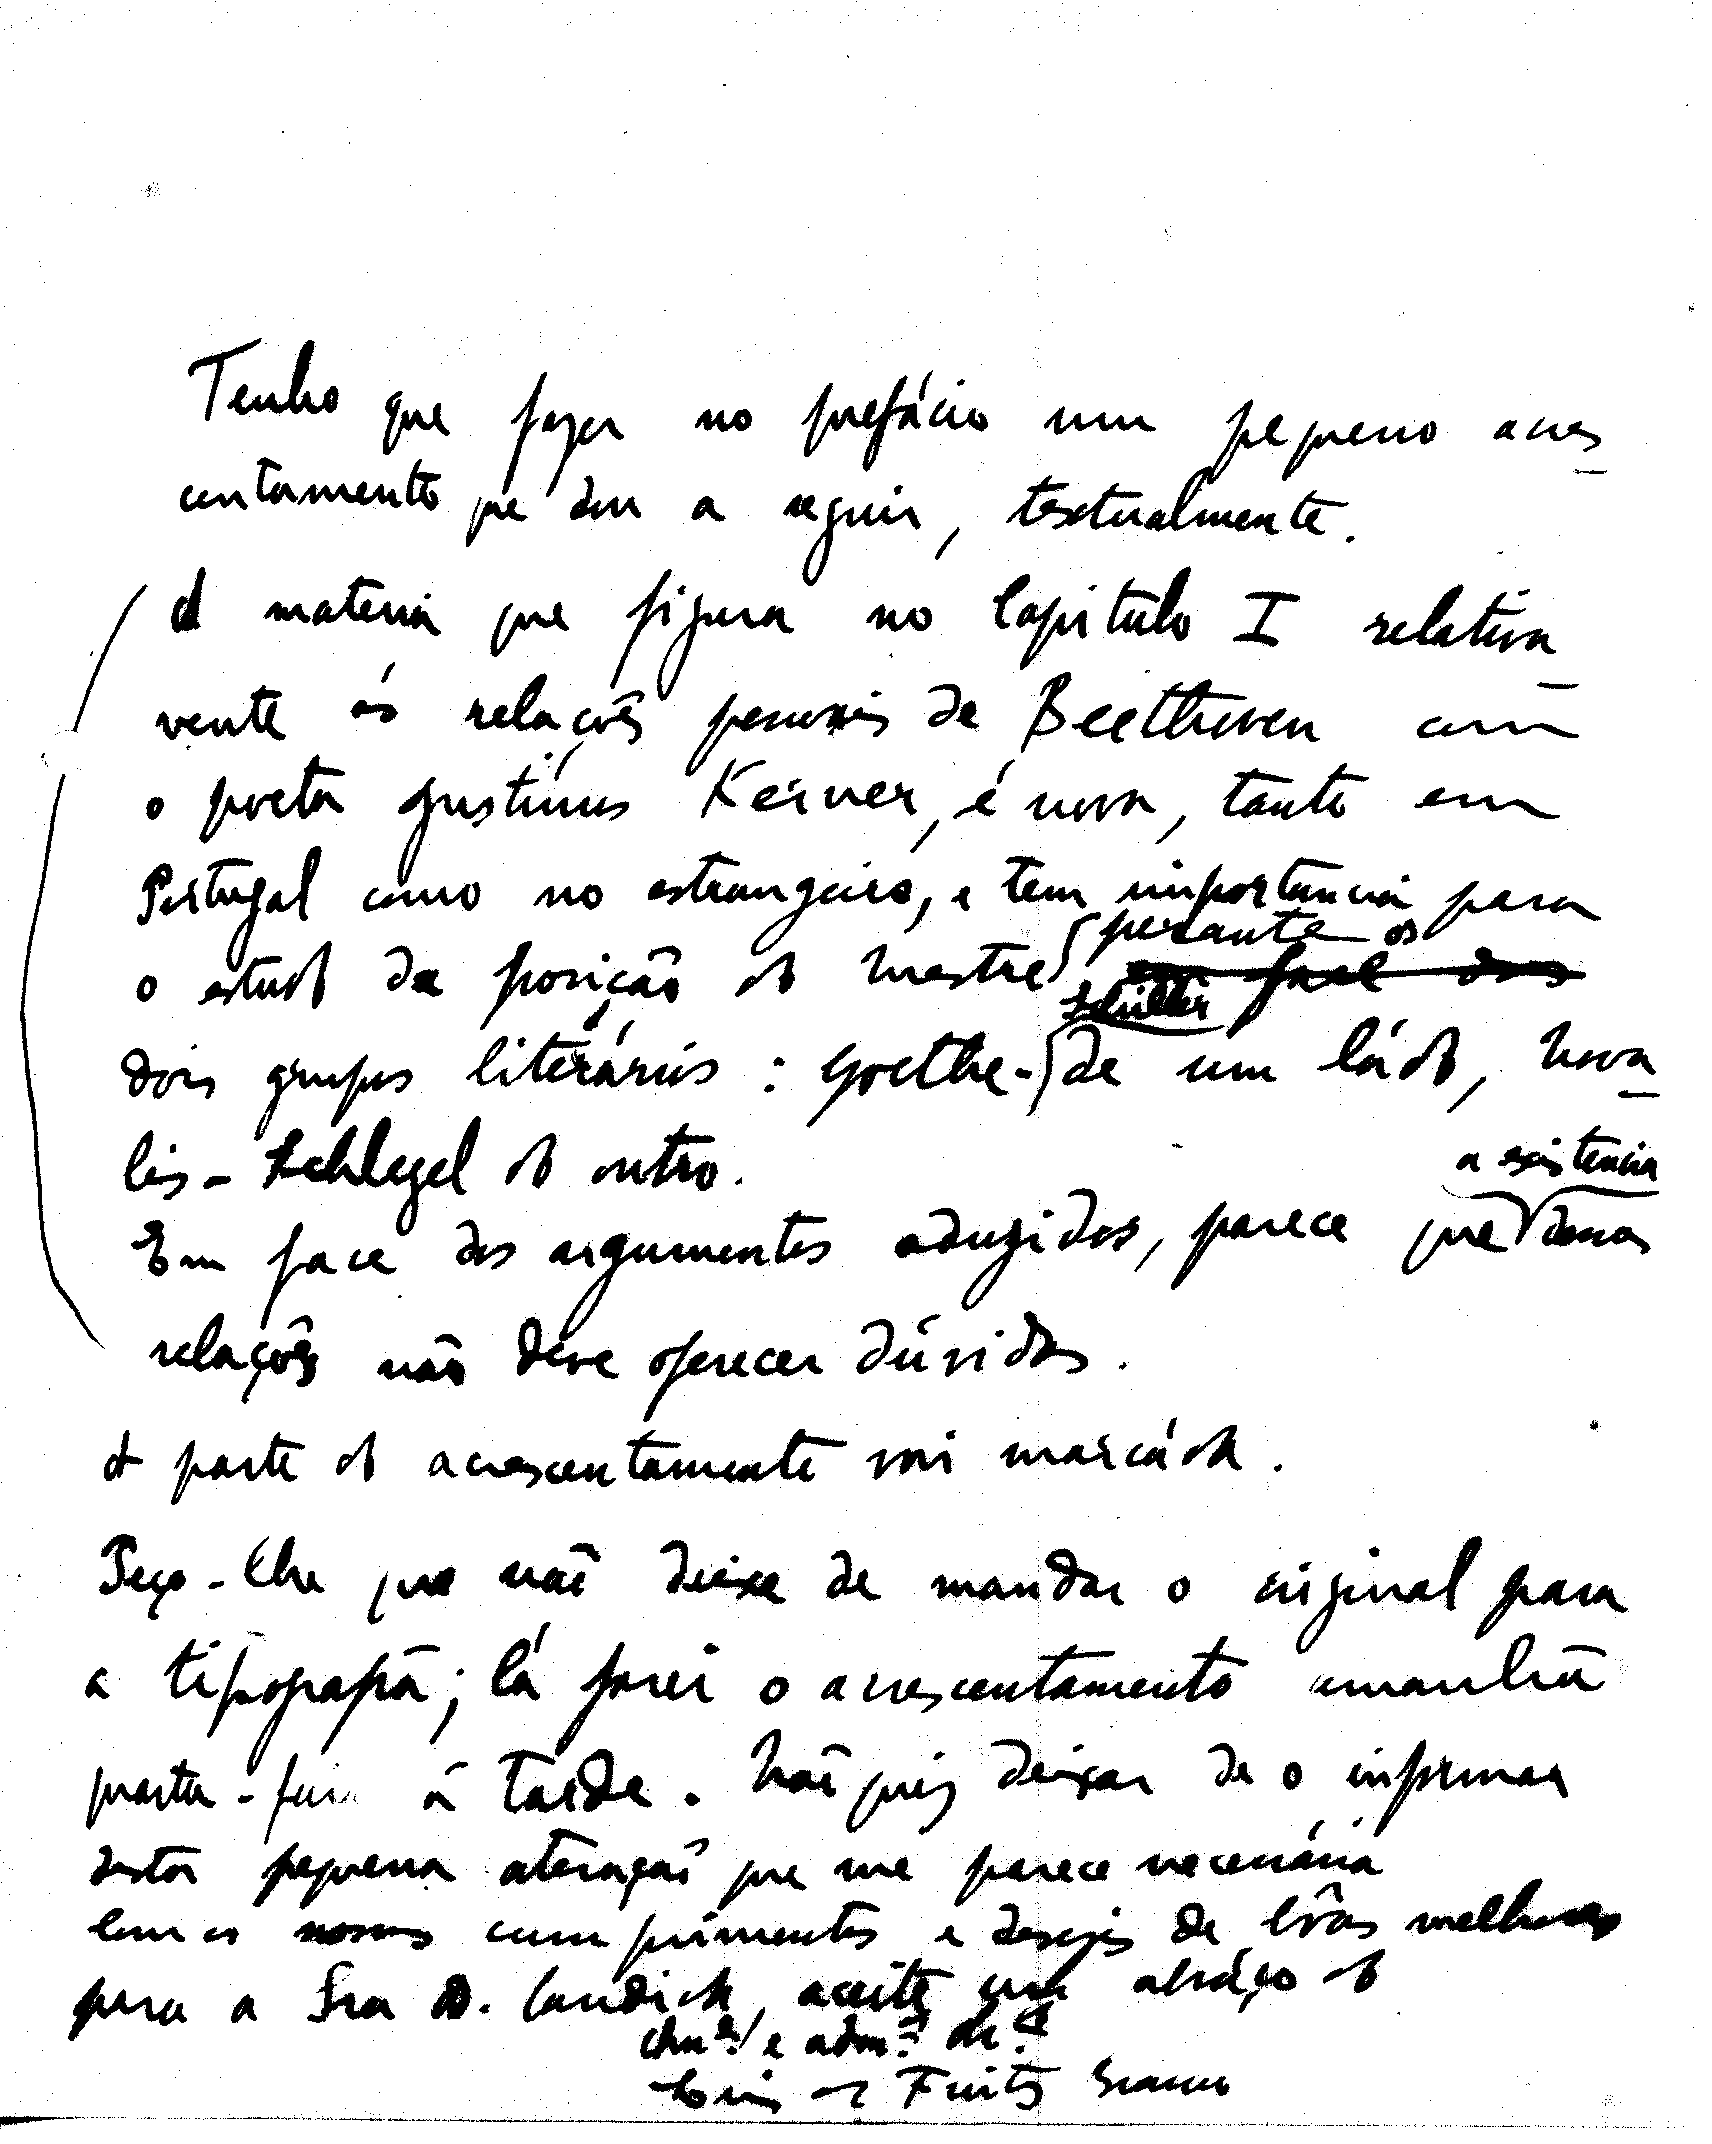 Tenho que fazer no prefácio um pequeno acres
centamento que dou a seguir, textualmente.
A materia que figura no Capitulo I relativa
mente ás relações pessoais de Beethoven com
o poeta Justinus Kerner, é nova, tanto em
Portugal como no estrangeiro, e tem importancia para
perante os
o estudo da posição do Mestre em face dos
Schiller
dois grupos literários: Goethe- de um ládo, Nova
lis-Schlegel do outro.
a existencia
Em face dos argumentos aduzidos, parece que dessas
relações não deve oferecer dúvidas.
A parte do acrescentamento vai marcáda.
Peço-lhe que não deixe de mandar o original para
a tipografia; lá farei o acrescentamento amanhã
quarta-feira á tarde. Não quiz deixar de o informar
desta pequena alteração que me parece necessária
Com os nossos cumprimentos e desejos de bôas melhoras
para a Sra D. Candida, aceite um abráço do
e
Luis de Freitas Branco